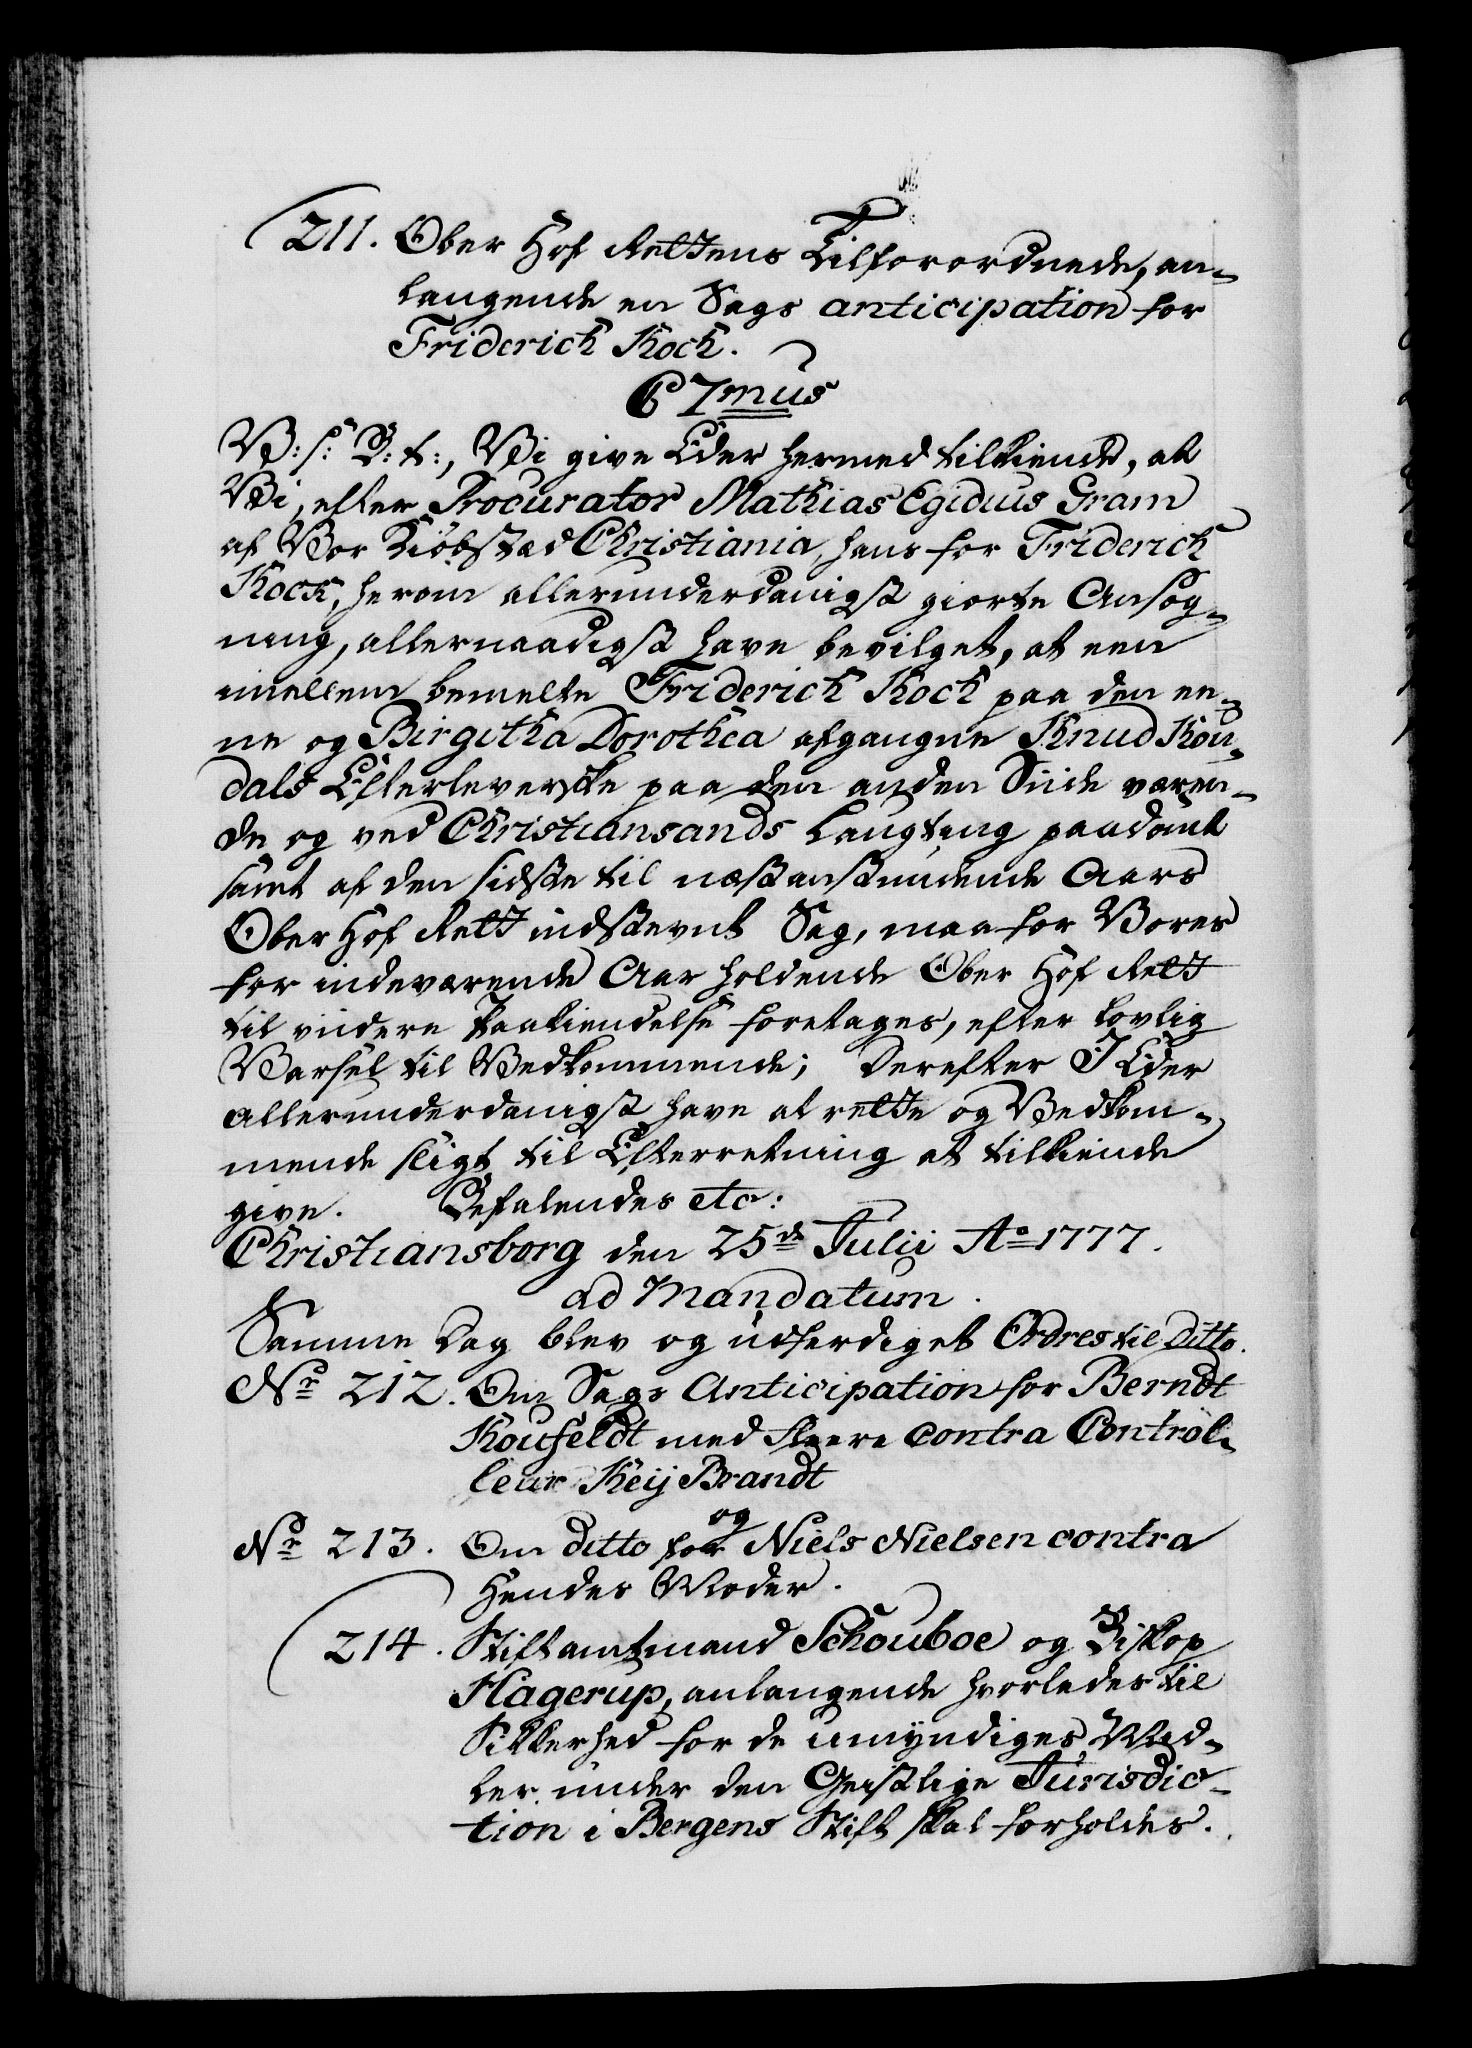 211. Ober Hof Rettens Tilforordnede, an-
langende en Sags anticipation for
Friderich Kock.
C 7mus
V: s: V: t:, Vi give Eder hermed tilkiende, at
Vi, efter Procurator Mathias Egidius Gram
af Vor Kiøbstæd Christiania, hans for Friderich
Kock, herom allerunderdanigst giorte Ansøg-
ning, allernaadigst have bevilget, at een
imellem bemelte Friderich Kock paa den ee-
ne og Birgitha Dorothea afgangne Knud Kou-
dals Efterleverske paa den anden Siide væren-
de og ved Christiansands Laugting paadømt
samt af den sidste til næstanstundende Aars
Ober Hof Rett indstevnt Sag, maa for Vores
for indeværende Aar holdende Ober Hof Rett
til videre Paakiendelse foretages, efter lovlig
Varsel til Vedkommende; Derefter I Eder
allerunderdanigst have at rette og Vedkom-
mende sligt til Efterretning at tilkiende
give. Befalendes etc:
Christiansborg den 25de Julii Ao 1777.
ad Mandatum.
Samme Dag blev og udferdiget Ordres til Ditto.
Nr 212. Om Sags Anticipation for Berndt
Koufeldt med fleere contra Control-
leur Keij Brandt
og
Nr 213. Om ditto for Niels Nielsen contra
Hendes Moder.
214. Stiftamtmand Schouboe og Biskop
Hagerup, anlangende hvorledes til
Sikkerhed for de umyndiges Mid-
ler under den Geistlige Jurisdic-
tion i Bergens Stift skal forholdes.